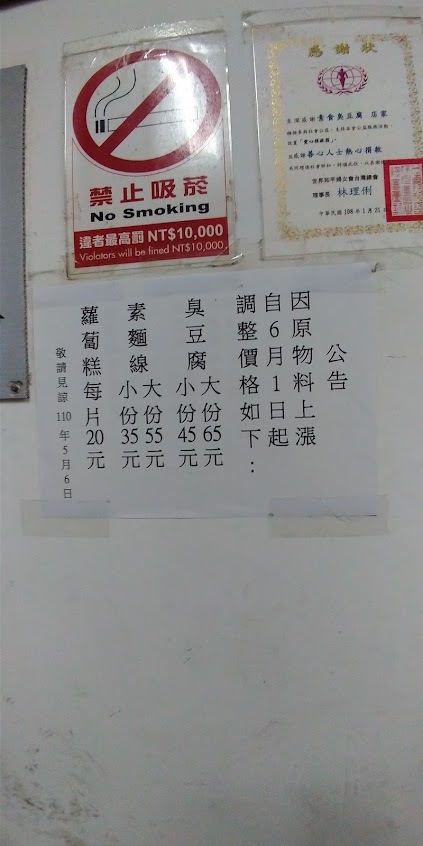 禁止吸菸
No Smoking
違者最高罰 NT$10,000
Violators will be fined NT$10,000
感謝狀
茲深感謝素食臭豆腐 店家
並感謝善心人士熱心捐款
世界和平婦女會台灣總會
理事長 林理俐
中華民國108年1月21
公告
因原物料上漲
自6月1日起
調整價格如下：
臭豆腐 大份65元
小份45元
素麵線 大份55元
小份35元
蘿蔔糕每片20元
敬請見諒 110年5月6日